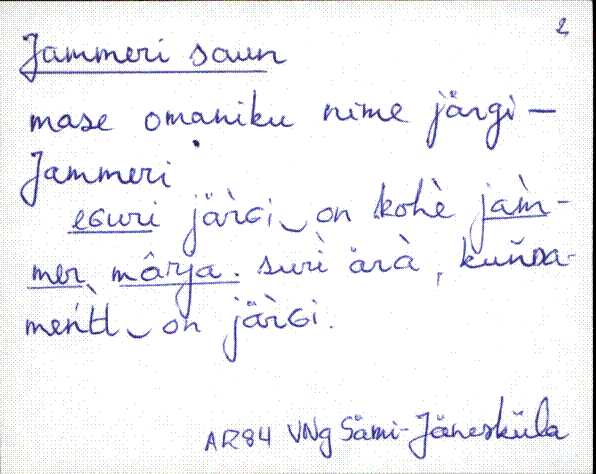 2
Jammeri saun
mase omaniku nime järgi —
Jammeri
eGuri järGi on kohè jam̀-
mer, mârja. surì ärà, kuňDa-
meǹtt on järGi.
AR84 VNg Sämi-Jäneskülа